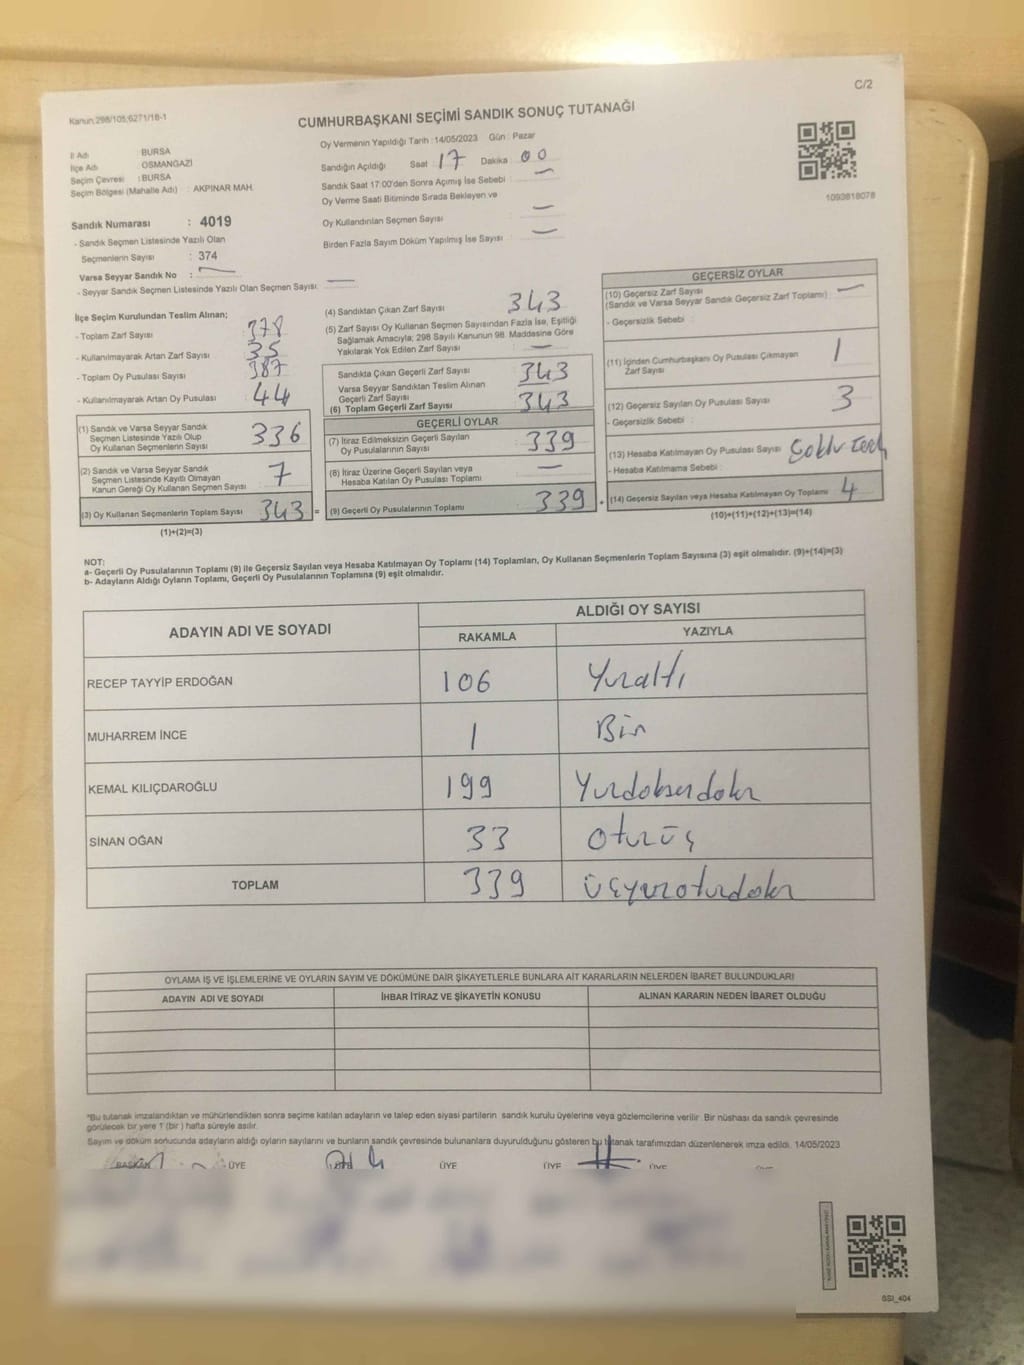 C/2
Kanun:298/105;6271/18-1
CUMHURBAŞKANI SEÇİMİ SANDIK SONUÇ TUTANAĞI
İl Adı : BURSA
İlçe Adı : OSMANGAZİ
Seçim Çevresi : BURSA
Seçim Bölgesi (Mahalle Adı) : AKPINAR MAH.
Oy Vermenin Yapıldığı Tarih : 14/05/2023 Gün : Pazar
Sandığın Açıldığı Saat : 17 Dakika : 00
Sandık Saat 17:00'den Sonra Açımış İse Sebebi : —
Oy Verme Saati Bitiminde Sırada Bekleyen ve
Oy Kullandırılan Seçmen Sayısı : —
Birden Fazla Sayım Döküm Yapılmış İse Sayısı : —
1093618078
Sandık Numarası : 4019
- Sandık Seçmen Listesinde Yazılı Olan
Seçmenlerin Sayısı : 374
Varsa Seyyar Sandık No : —
- Seyyar Sandık Seçmen Listesinde Yazılı Olan Seçmen Sayısı: —
İlçe Seçim Kurulundan Teslim Alınan;
- Toplam Zarf Sayısı : 378
- Kullanılmayarak Artan Zarf Sayısı : 35
- Toplam Oy Pusulası Sayısı : 387
- Kullanılmayarak Artan Oy Pusulası : 44
(1) Sandık ve Varsa Seyyar Sandık
Seçmen Listesinde Yazılı Olup
Oy Kullanan Seçmenlerin Sayısı : 336
(2) Sandık ve Varsa Seyyar Sandık
Seçmen Listesinde Kayıtlı Olmayan
Kanun Gereği Oy Kullanan Seçmen Sayısı : 7
(3) Oy Kullanan Seçmenlerin Toplam Sayısı : 343 =
(1)+(2)=(3)
(4) Sandıktan Çıkan Zarf Sayısı : 343
(5) Zarf Sayısı Oy Kullanan Seçmen Sayısından Fazla İse, Eşitliği
Sağlamak Amacıyla; 298 Sayılı Kanunun 98. Maddesine Göre
Yakılarak Yok Edilen Zarf Sayısı : —
Sandıkta Çıkan Geçerli Zarf Sayısı : 343
Varsa Seyyar Sandıktan Teslim Alınan
Geçerli Zarf Sayısı : —
(6) Toplam Geçerli Zarf Sayısı : 343
GEÇERLİ OYLAR
(7) İtiraz Edilmeksizin Geçerli Sayılan
Oy Pusulalarının Sayısı : 339
(8) İtiraz Üzerine Geçerli Sayılan veya
Hesaba Katılan Oy Pusulası Toplamı : —
(9) Geçerli Oy Pusulalarının Toplamı : 339 +
GEÇERSİZ OYLAR
(10) Geçersiz Zarf Sayısı
(Sandık ve Varsa Seyyar Sandık Geçersiz Zarf Toplamı) : —
- Geçersizlik Sebebi :
(11) İçinden Cumhurbaşkanı Oy Pusulası Çıkmayan
Zarf Sayısı : 1
(12) Geçersiz Sayılan Oy Pusulası Sayısı : 3
- Geçersizlik Sebebi :
(13) Hesaba Katılmayan Oy Pusulası Sayısı :
- Hesaba Katılmama Sebebi :
(14) Geçersiz Sayılan veya Hesaba Katılmayan Oy Toplamı : 4
(10)+(11)+(12)+(13)=(14)
NOT:
a- Geçerli Oy Pusulalarının Toplamı (9) ile Geçersiz Sayılan veya Hesaba Katılmayan Oy Toplamı (14) Toplamları, Oy Kullanan Seçmenlerin Toplam Sayısına (3) eşit olmalıdır. (9)+(14)=(3)
b- Adayların Aldığı Oyların Toplamı, Geçerli Oy Pusulalarının Toplamına (9) eşit olmalıdır.
ADAYIN ADI VE SOYADI ALDIĞI OY SAYISI
RAKAMLA YAZIYLA
RECEP TAYYİP ERDOĞAN 106 Yüzaltı
MUHARREM İNCE 1 Bir
KEMAL KILIÇDAROĞLU 199 Yüzdoksandokuz
SİNAN OĞAN 33 Otuzüç
TOPLAM 339 Üçyüzotuzdokuz
OYLAMA İŞ VE İŞLEMLERİNE VE OYLARIN SAYIM VE DÖKÜMÜNE DAİR ŞİKAYETLERLE BUNLARA AİT KARARLARIN NELERDEN İBARET BULUNDUKLARI
ADAYIN ADI VE SOYADI İHBAR İTİRAZ VE ŞİKAYETİN KONUSU ALINAN KARARIN NEDEN İBARET OLDUĞU
*Bu tutanak imzalandıktan ve mühürlendikten sonra seçime katılan adayların ve talep eden siyasi partilerin sandık kurulu üyelerine veya gözlemcilerine verilir. Bir nüshası da sandık çevresinde
görülecek bir yere 1 (bir) hafta süreyle asılır.
Sayım ve döküm sonucunda adayların aldığı oyların sayılarını ve bunların sandık çevresinde bulunanlara duyurulduğunu gösteren bu tutanak tarafımızdan düzenlenerek imza edildi. 14/05/2023
BAŞKAN ÜYE ÜYE ÜYE ÜYE
SSI_404